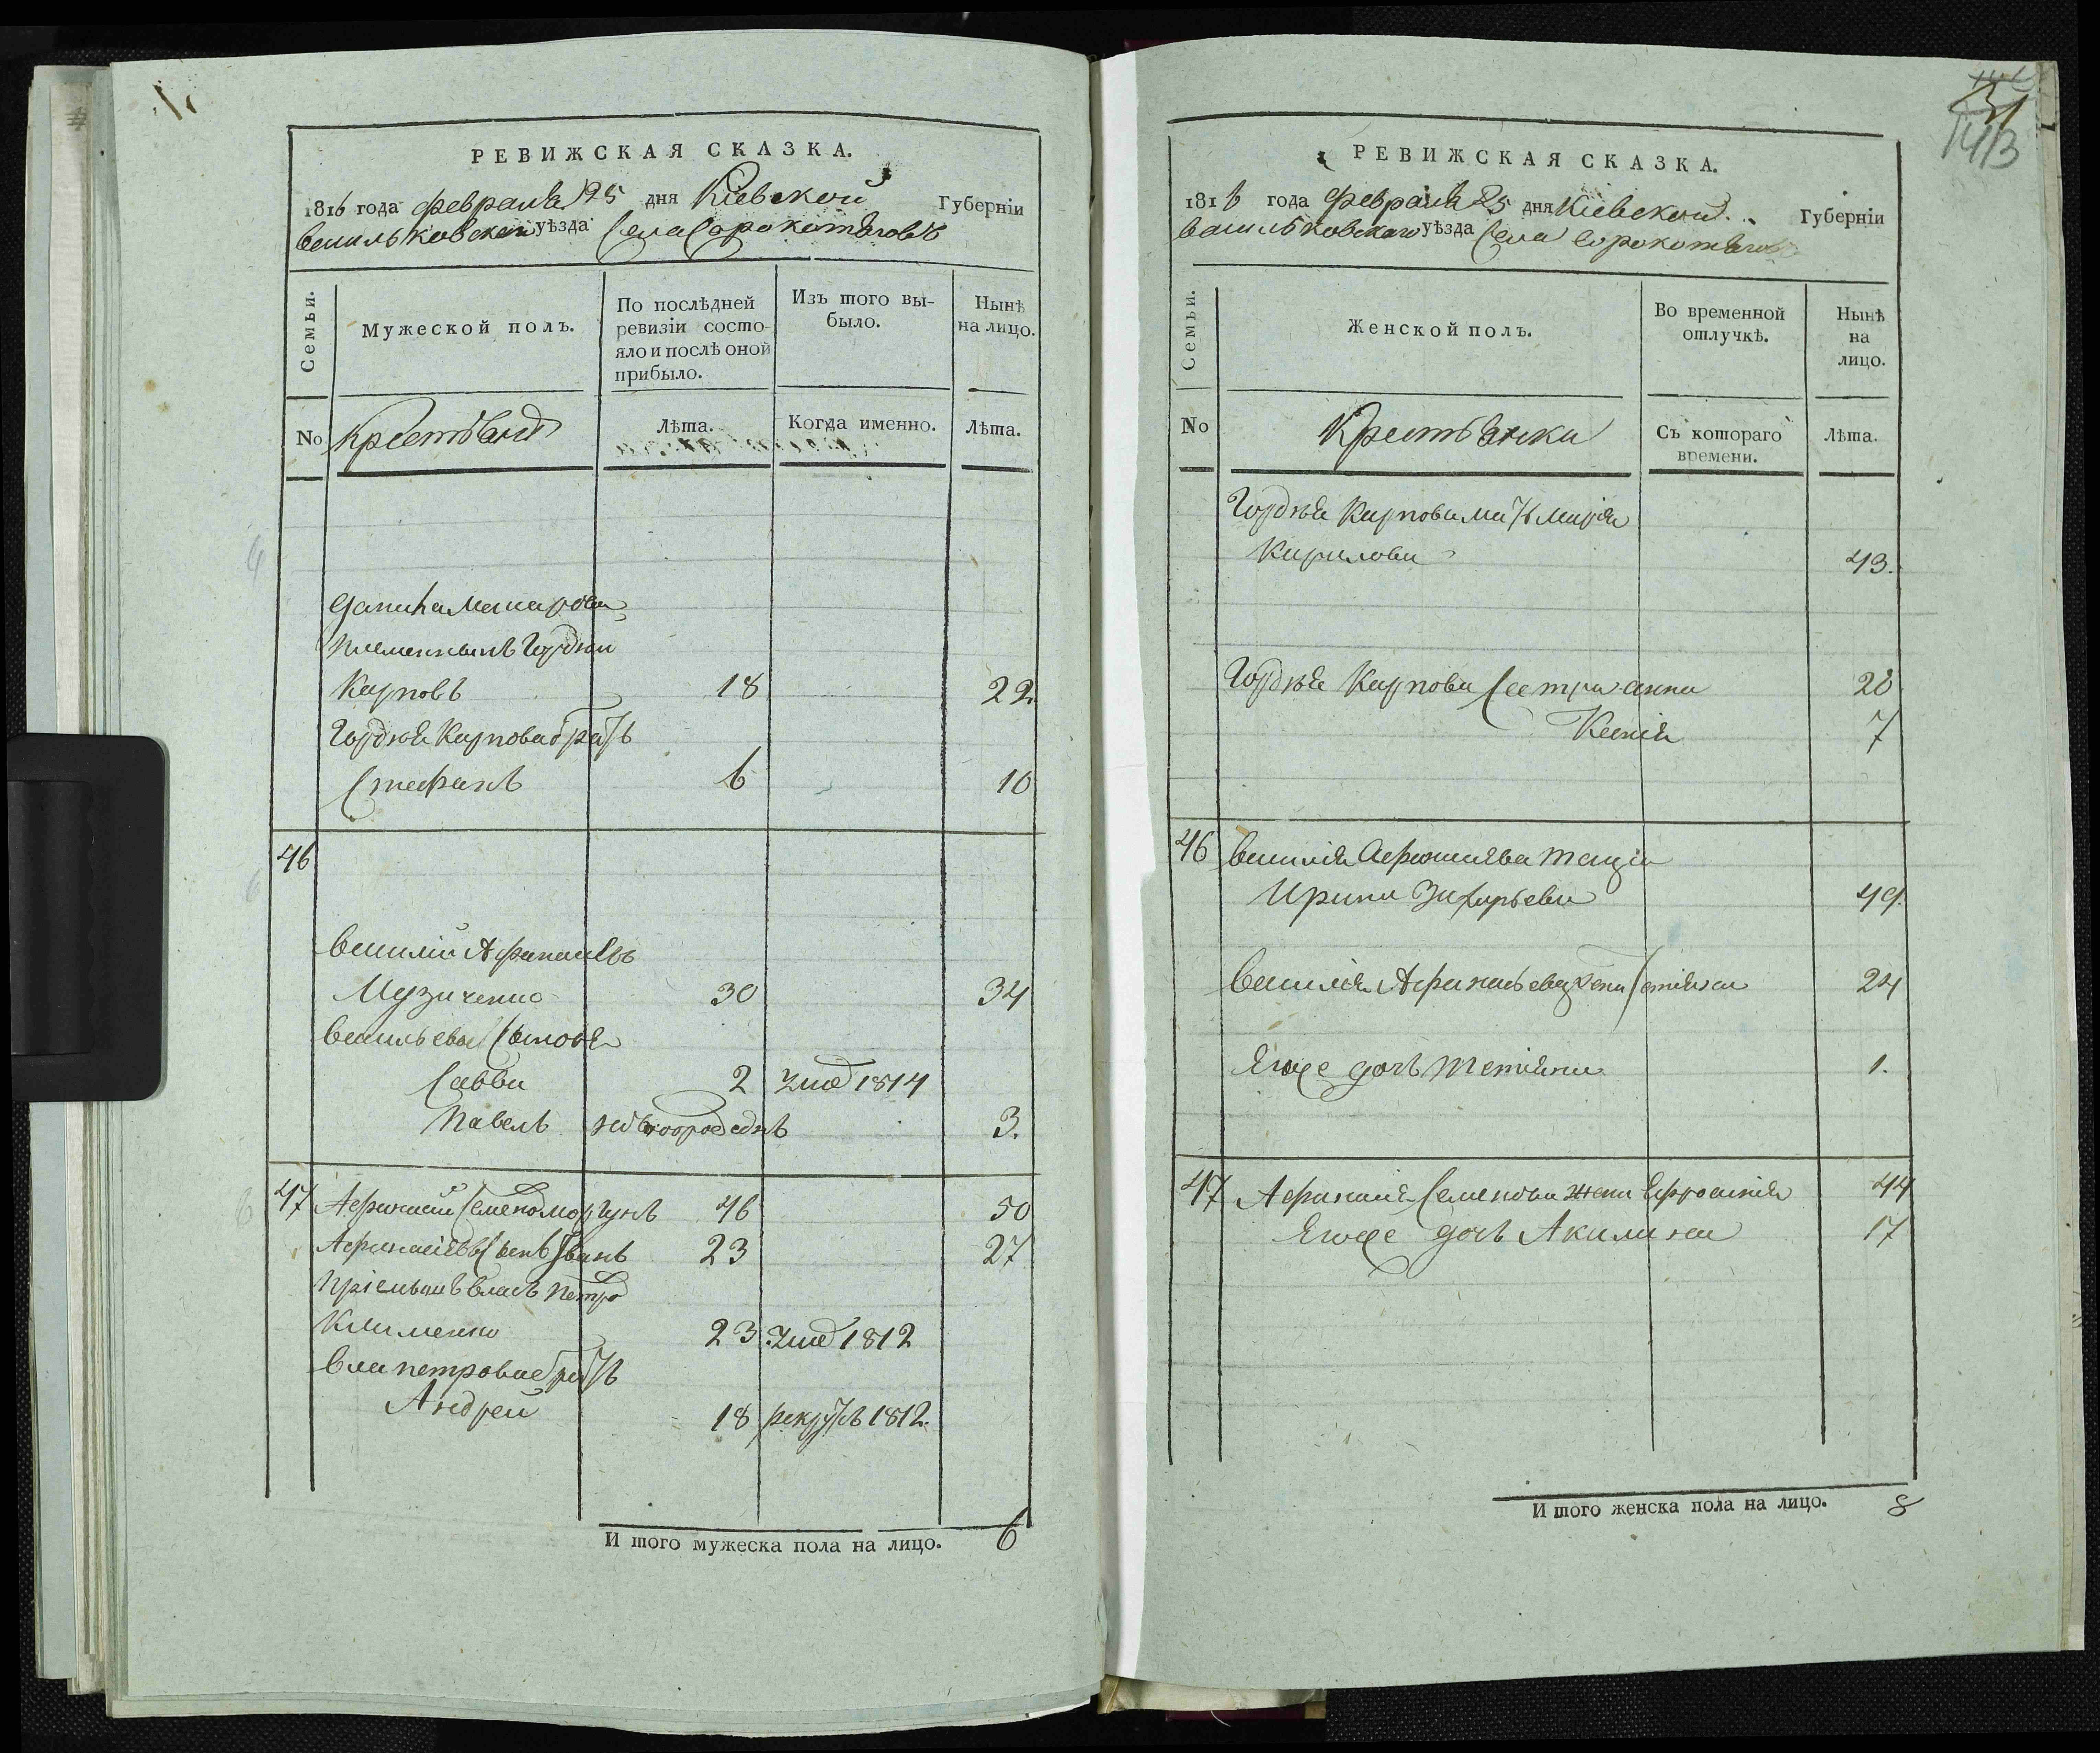 РЕВИЖСКАЯ СКАЗКА.
1816 года февраля 25 дня Кіевской Губерніи
васильковскаго уѣзда Села Сорокотяговъ
Семьи.
Мужеской полъ.
По послѣдней ревизіи состояло и послѣ оной прибыло.
Изъ того выбыло.
Нынѣ на лицо.
No
Крестьяне
Лѣта.
Когда именно.
Лѣта.
Данила Макарова
племенникъ Гордѣй
Карповъ 18 22.
Гордѣя Карпова братъ
Стефанъ 6 10
46
Василій Афанасіевъ
Музиченко 30 34
Васильевы Сыновя
Савва 2 умре 1814
Павелъ новорожденъ 3.
47 Афанасій Семеновъ Моргунъ 46 50
Афанасіевъ Сынъ Иванъ 23 27
Пріемышъ Власъ Петровъ
Клименко 23 умре 1812
Власа петрова братъ
Андрей 18 рекрутъ 1812.
И того мужеска пола на лицо. 6
143
РЕВИЖСКАЯ СКАЗКА.
1816 года февраля 25 дня Кіевской Губерніи
васильковскаго уѣзда Села Сорокотяговъ
Семьи.
Женской полъ.
Во временной отлучкѣ.
Нынѣ на лицо.
No
Крестьянки
Съ котораго времени.
Лѣта.
Гордѣя Карпова мать Марія
Кирилова 43.
Гордѣя Карпова Сестра анна 28
Ксенія 7
46 Василія Афанасіева
Ирина Захарьева 49.
Василія Афанасьева жена Тетіяна 24
Ягоже дочь Тетіяна 1.
47 Афанасія Семенова жена Ефросинія 44
Ягоже дочь Акилина 17
И того женска пола на лицо. 8